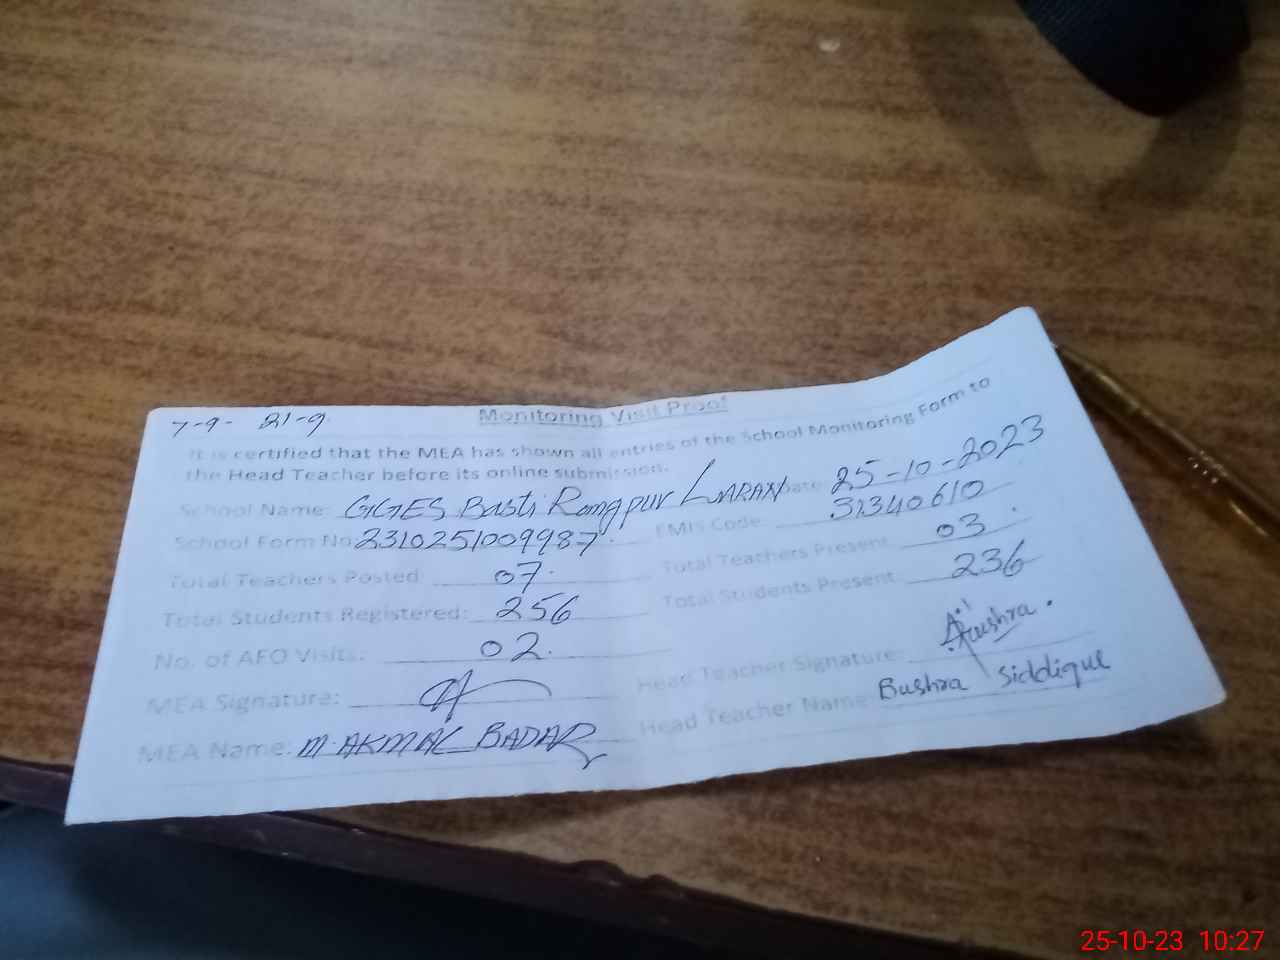 7-9- 21-9.
Monitoring Visit Proof
It is certified that the MEA has shown all entries of the School Monitoring Form to
the Head Teacher before its online submission.
School Name: GGES Basti Rangpur LARAN Date: 25-10-2023
School Form No 2310251009987 EMIS Code: 31340610
Total Teachers Posted: 07. Total Teachers Present: 03
Total Students Registered: 256 Total Students Present: 236
No. of AFO Visits: 02.
MEA Signature: Head Teacher Signature: Bushra.
MEA Name: M. AKMAL BADAR Head Teacher Name: Bushra Siddique
25-10-23 10:27